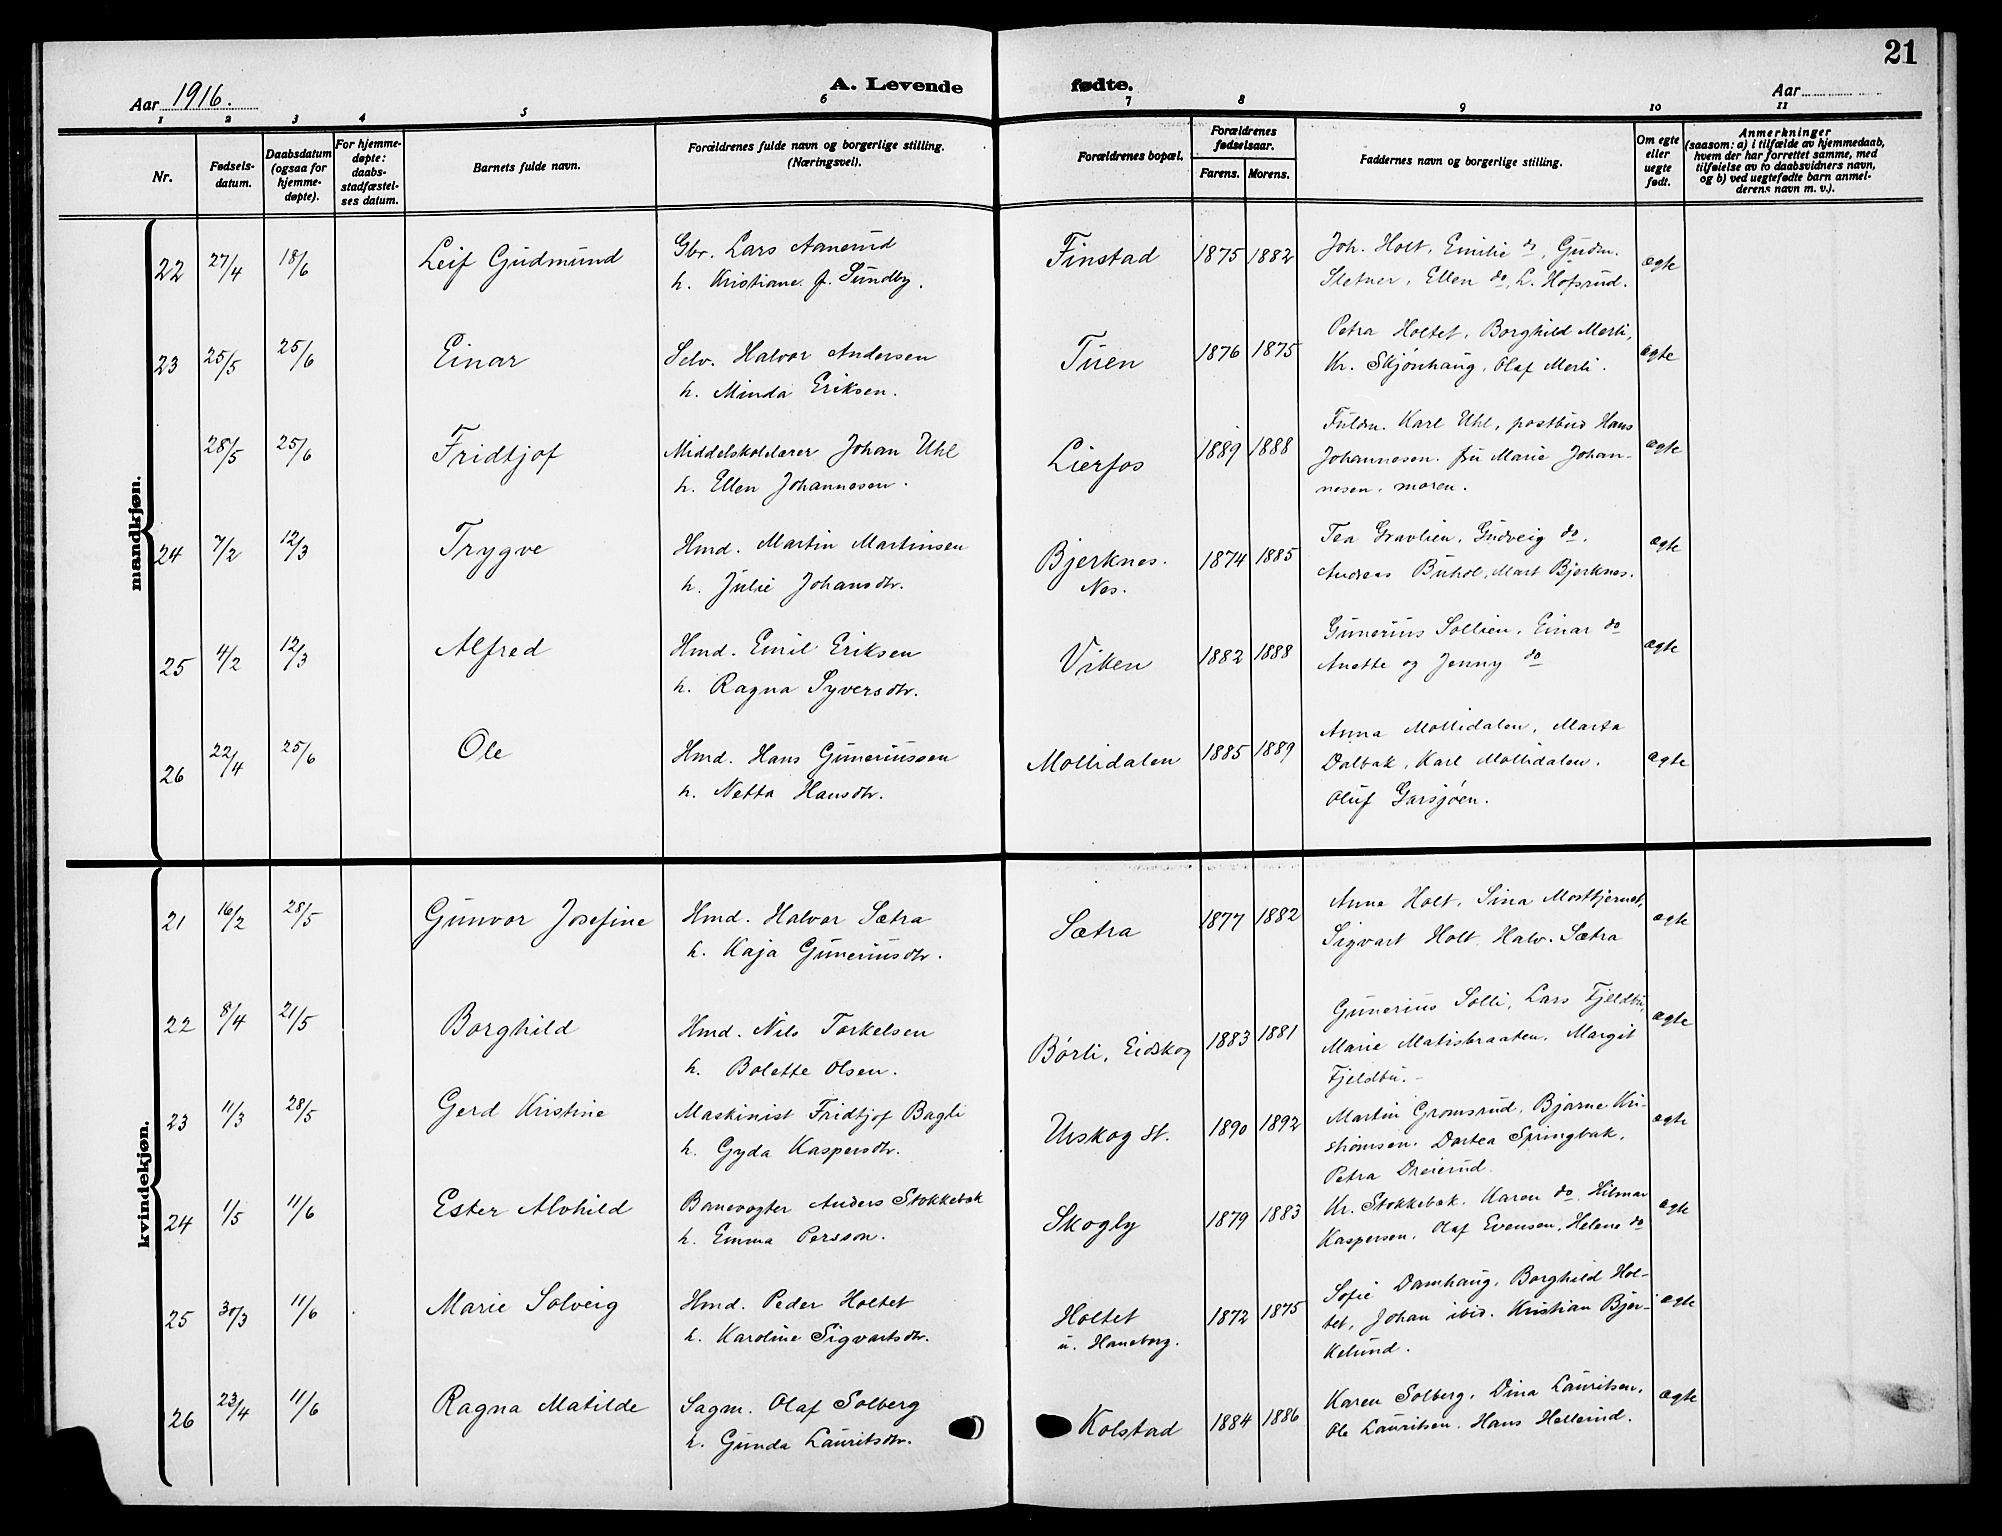 21
Aar 1916.
A. Levende fødte.
Aar
1 2 3 4 5 6 7 8 9 10 11
Nr.
Fødsels-
datum.
Daabsdatum
(ogsaa for
hjemme-
døpte).
For hjemme-
døpte:
daabs-
stadfæstel-
ses datum.
Barnets fulde navn.
Forældrenes fulde navn og borgerlige stilling.
(Næringsvei).
Forældrenes bopæl.
Forældrenes
fødselsaar.
Farens. Morens.
Faddernes navn og borgerlige stilling.
Om egte
eller
uegte
født.
Anmerkninger
(saasom: a) i tilfælde av hjemmedaab,
hvem der har forrettet samme, med
tilføielse av to daabsvidners navn,
og b) ved uegtefødte barn anmel-
derens navn m. v.).
mandkjøn.
22 27/4 18/6 Leif Gudmund Gbr. Lars Aanerud Finstad 1875 1882 Joh. Holt, Emilie do, Gudm. ægte
h. Kristiane f. Sundby. Sletner, Ellen do, L. Hofsrud.
23 25/5 25/6 Einar Selv. Halvor Andersen Tuen 1876 1875 Petra Holtet, Borghild Merli, ægte
h. Minda Eriksen. Kr. Skjønhaug, Olaf Merli.
28/5 25/6 Fridtjof Middelskolelærer Johan Uhl Lierfos 1889 1888 Fuldm. Karl Uhl, postbud Hans ægte
h. Ellen Johannesen. Johannesen. fru Marie Johan-
nesen, moren.
24 7/2 12/3 Trygve Hmd. Martin Martinsen Bjerknes. 1874 1885 Tea Gravlien, Gudveig do, ægte
h. Julie Johansdtr. Nes. Andreas Buhol, Mart Bjerknes.
25 4/2 12/3 Alfred Hmd. Emil Eriksen Viken 1882 1888 Gunerius Sollien, Einar do ægte
h. Ragna Syversdtr. Anette og Jenny do
26 22/4 25/6 Ole Hmd. Hans Guneriussen Mollidalen 1885 1889 Anna Mollidalen, Marta ægte
h. Netta Hansdtr. Dalbak, Karl Mollidalen.
Oluf Garsjøen.
kvindekjøn.
21 16/2 28/5 Gunvor Josefine Hmd. Halvor Sætra Sætra 1877 1882 Anne Holt, Sina Mostbjernet, ægte
h. Kaja Guneriusdtr. Sigvart Holt, Halv. Sætra
22 8/4 21/5 Borghild Hmd. Nils Torkelsen Børli, Eidskog 1883 1881 Gunerius Solli, Lars Fjeldbu, ægte
h. Bolette Olsen. Marie Matisbraaten. Margit
Fjeldbu.
23 11/3 28/5 Gerd Kristine Maskinist Fridtjof Bagli Urskog st. 1890 1892 Martin Gromsrud, Bjarne Kri- ægte
h. Gyda Kaspersdtr. Dortea Springbak,
Petra Dreierud.
24 1/5 11/6 Ester Alvhild Banevogter Anders Stokkebæk Skogly 1879 1883 Kr. Stokkebæk. Karen do, Hilmar ægte
h. Emma Persson. Kaspersen, Olaf Evensen, Helene do
25 30/3 11/6 Marie Solveig Hmd. Peder Holtet Holtet 1872 1875 Sofie Damhaug, Borghild Hol- ægte
h. Karoline Sigvartsdtr. u. Haneborg. tet, Johan ibid. Kristian Bjer-
kelund.
26 23/4 11/6 Ragna Matilde Sagm. Olaf Solberg Kolstad 1884 1886 Karen Solberg, Dina Lauritsen, ægte
h. Gunda Lauritsdtr. Ole Lauritsen. Hans Hellerud.